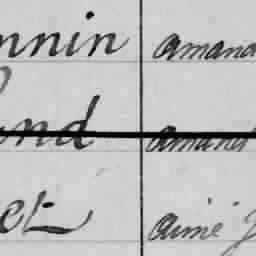 nnin amand
and amand
et aimé J